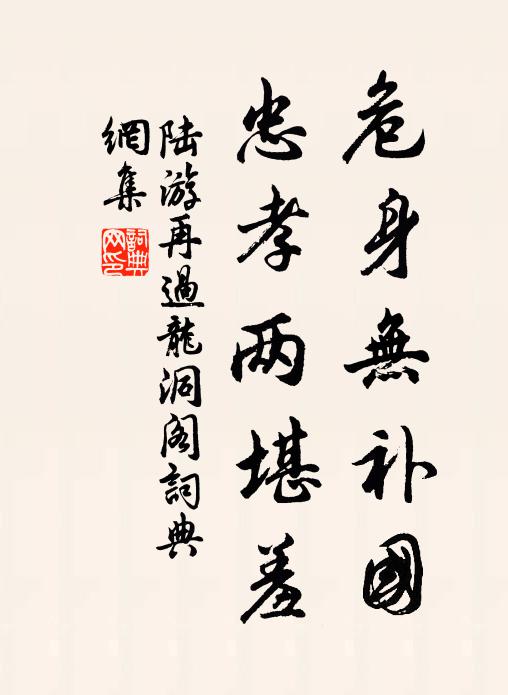 危身無补國
忠孝两堪羞
陆游再過龍洞阁詞典
網集
詞典
网印